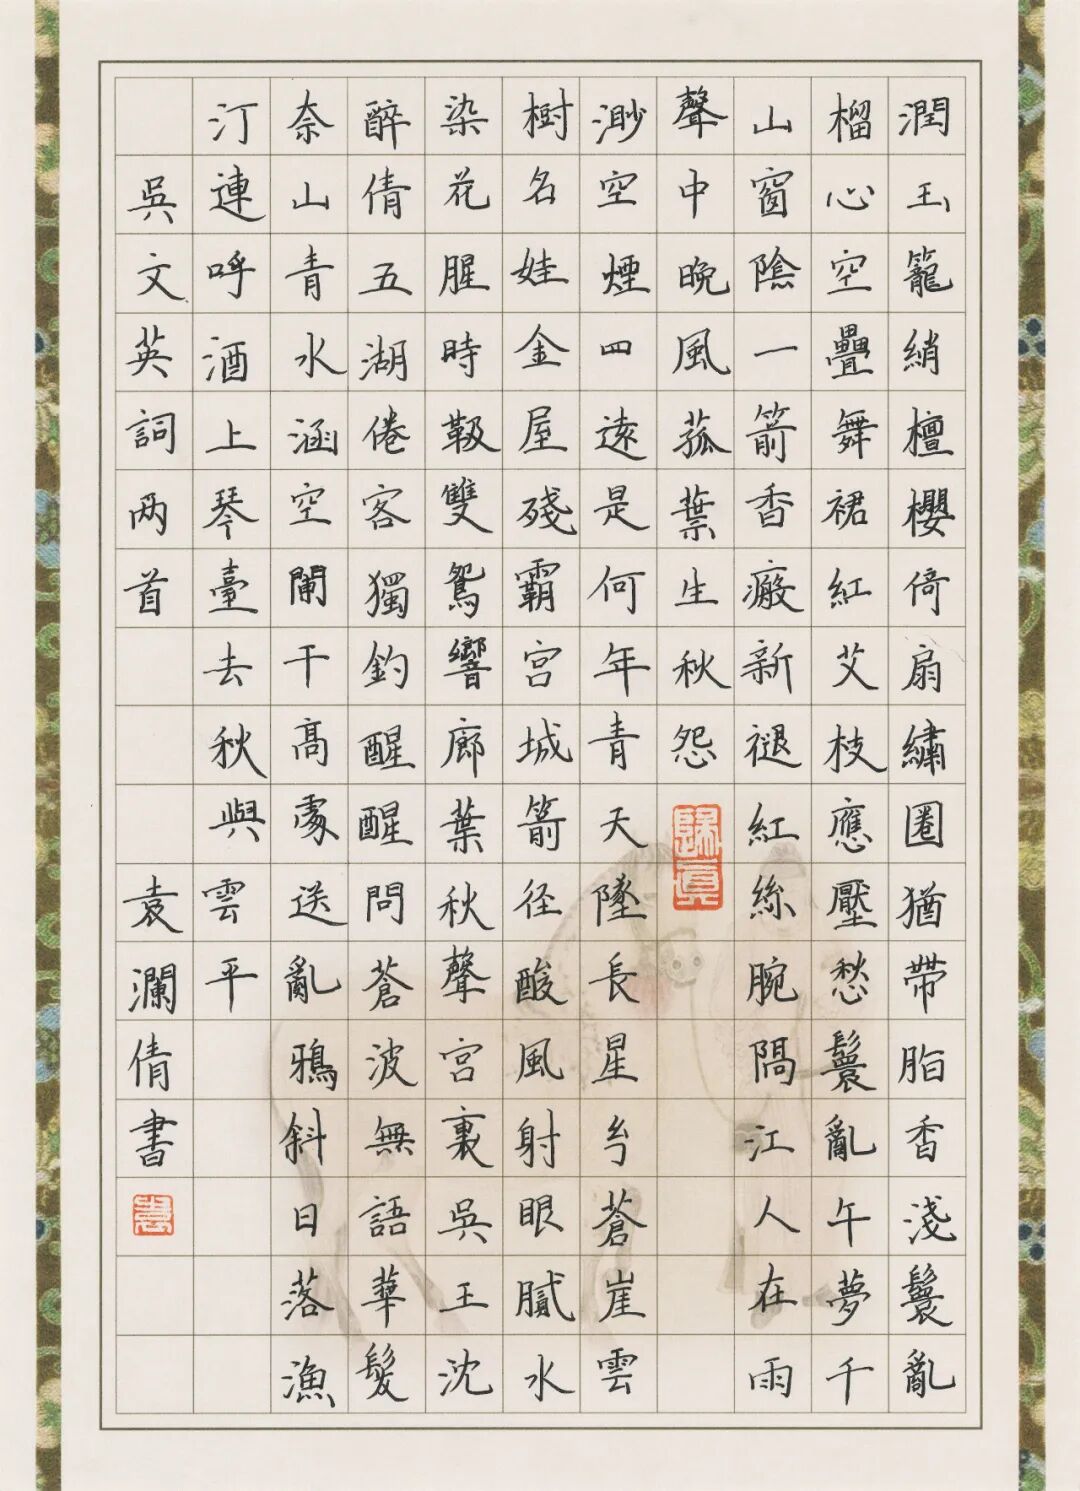 潤玉籠綃檀櫻倚扇繡圈猶帶脂香淺鬟亂
榴心空疊舞裙紅艾枝應壓愁鬟亂午夢千
山窗陰一箭香瘢新褪紅絲腕隔江人在雨
聲中晚風菰葉生秋怨
歸真
渺空煙四遠是何年青天墜長星兮蒼崖雲
樹名娃金屋殘霸宮城箭径酸風射眼膩水
染花腥時靸雙鴛響廊葉秋聲宮裏吳王沈
醉倩五湖倦客獨釣醒醒問蒼波無語華髮
奈山青水涵空闌干高處送亂鴉斜日落漁
汀連呼酒上琴臺去秋與雲平
吳文英詞两首 袁瀾倩書